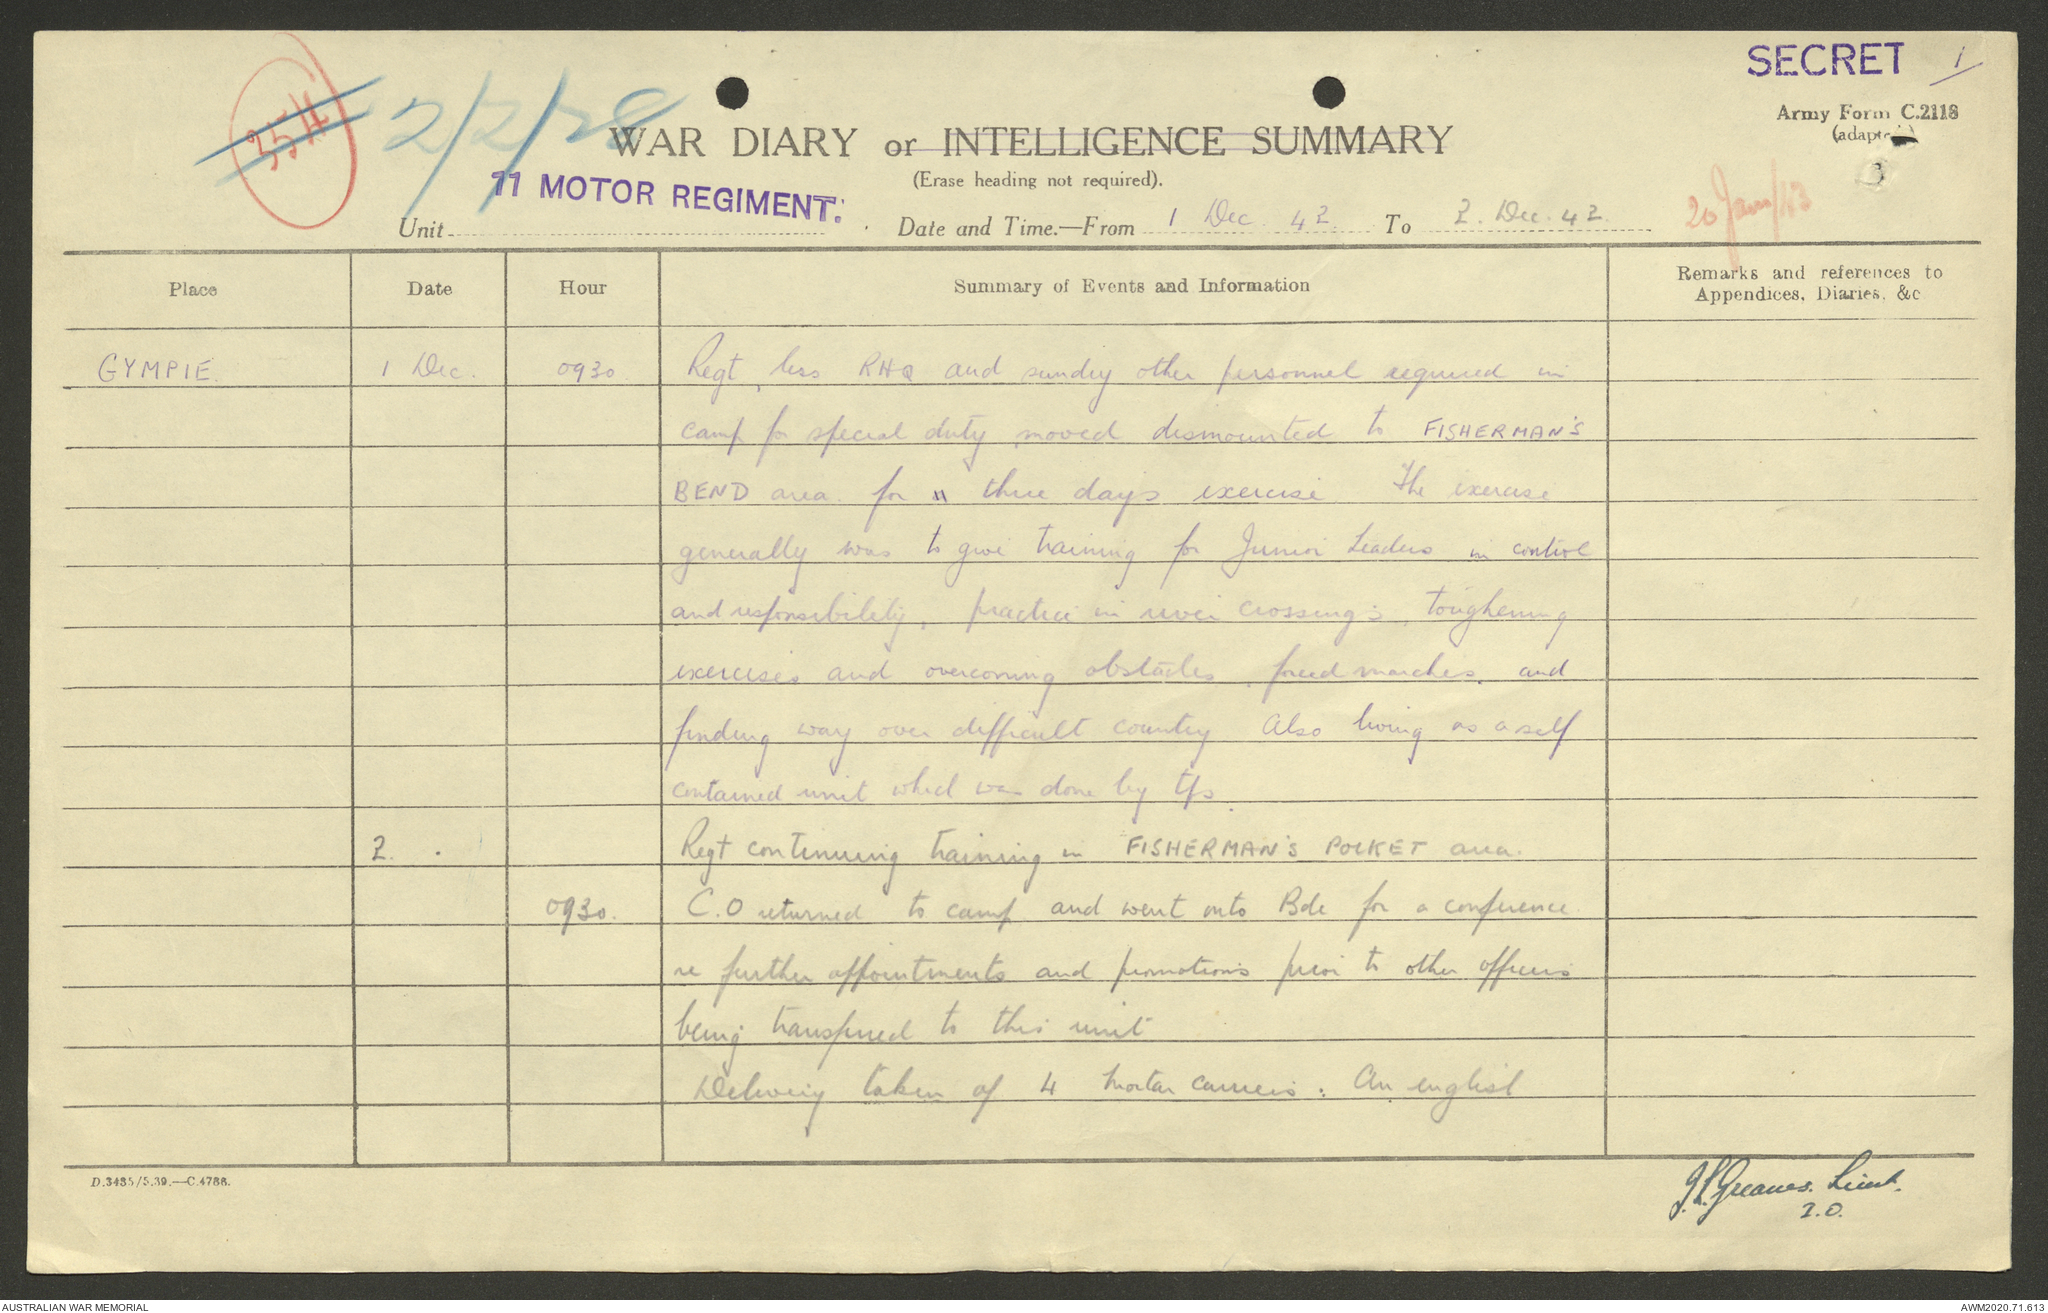 SECRET 1
Army Form C.2118
35H
2/2/28
WAR DIARY or INTELLIGENCE SUMMARY
(Erase heading not required).
20 Jan/43
11 MOTOR REGIMENT.
Unit Date and Time.—From 1 Dec. 42. To 2. Dec. 42.
Place Date Hour Summary of Events and Information Remarks and references to
Appendices, Diaries, &c
GYMPIE. 1 Dec. 0930 Regt, less RHQ and sundry other personnel required in
camp for special duty, moved dismounted to FISHERMAN'S
BEND area for three days exercise. The exercise
generally was to give training for Junior Leaders in control
and responsibility, practice in river crossings, toughening
exercises and overcoming obstacles, forced marches, and
finding way over difficult country Also living as a self
contained unit which was done by tps.
2. Regt continuing training in FISHERMAN'S POCKET area.
0930. C.O returned to camp and went onto Bde for a conference
re further appointments and promotions prior to other officers
being transferred to this unit
Delivery taken of 4 Mortar carriers. An english
D.3435/5.39.—C.4788.
J.L. Greaves. Lieut.
I.O.
AUSTRALIAN WAR MEMORIAL AWM2020.71.613